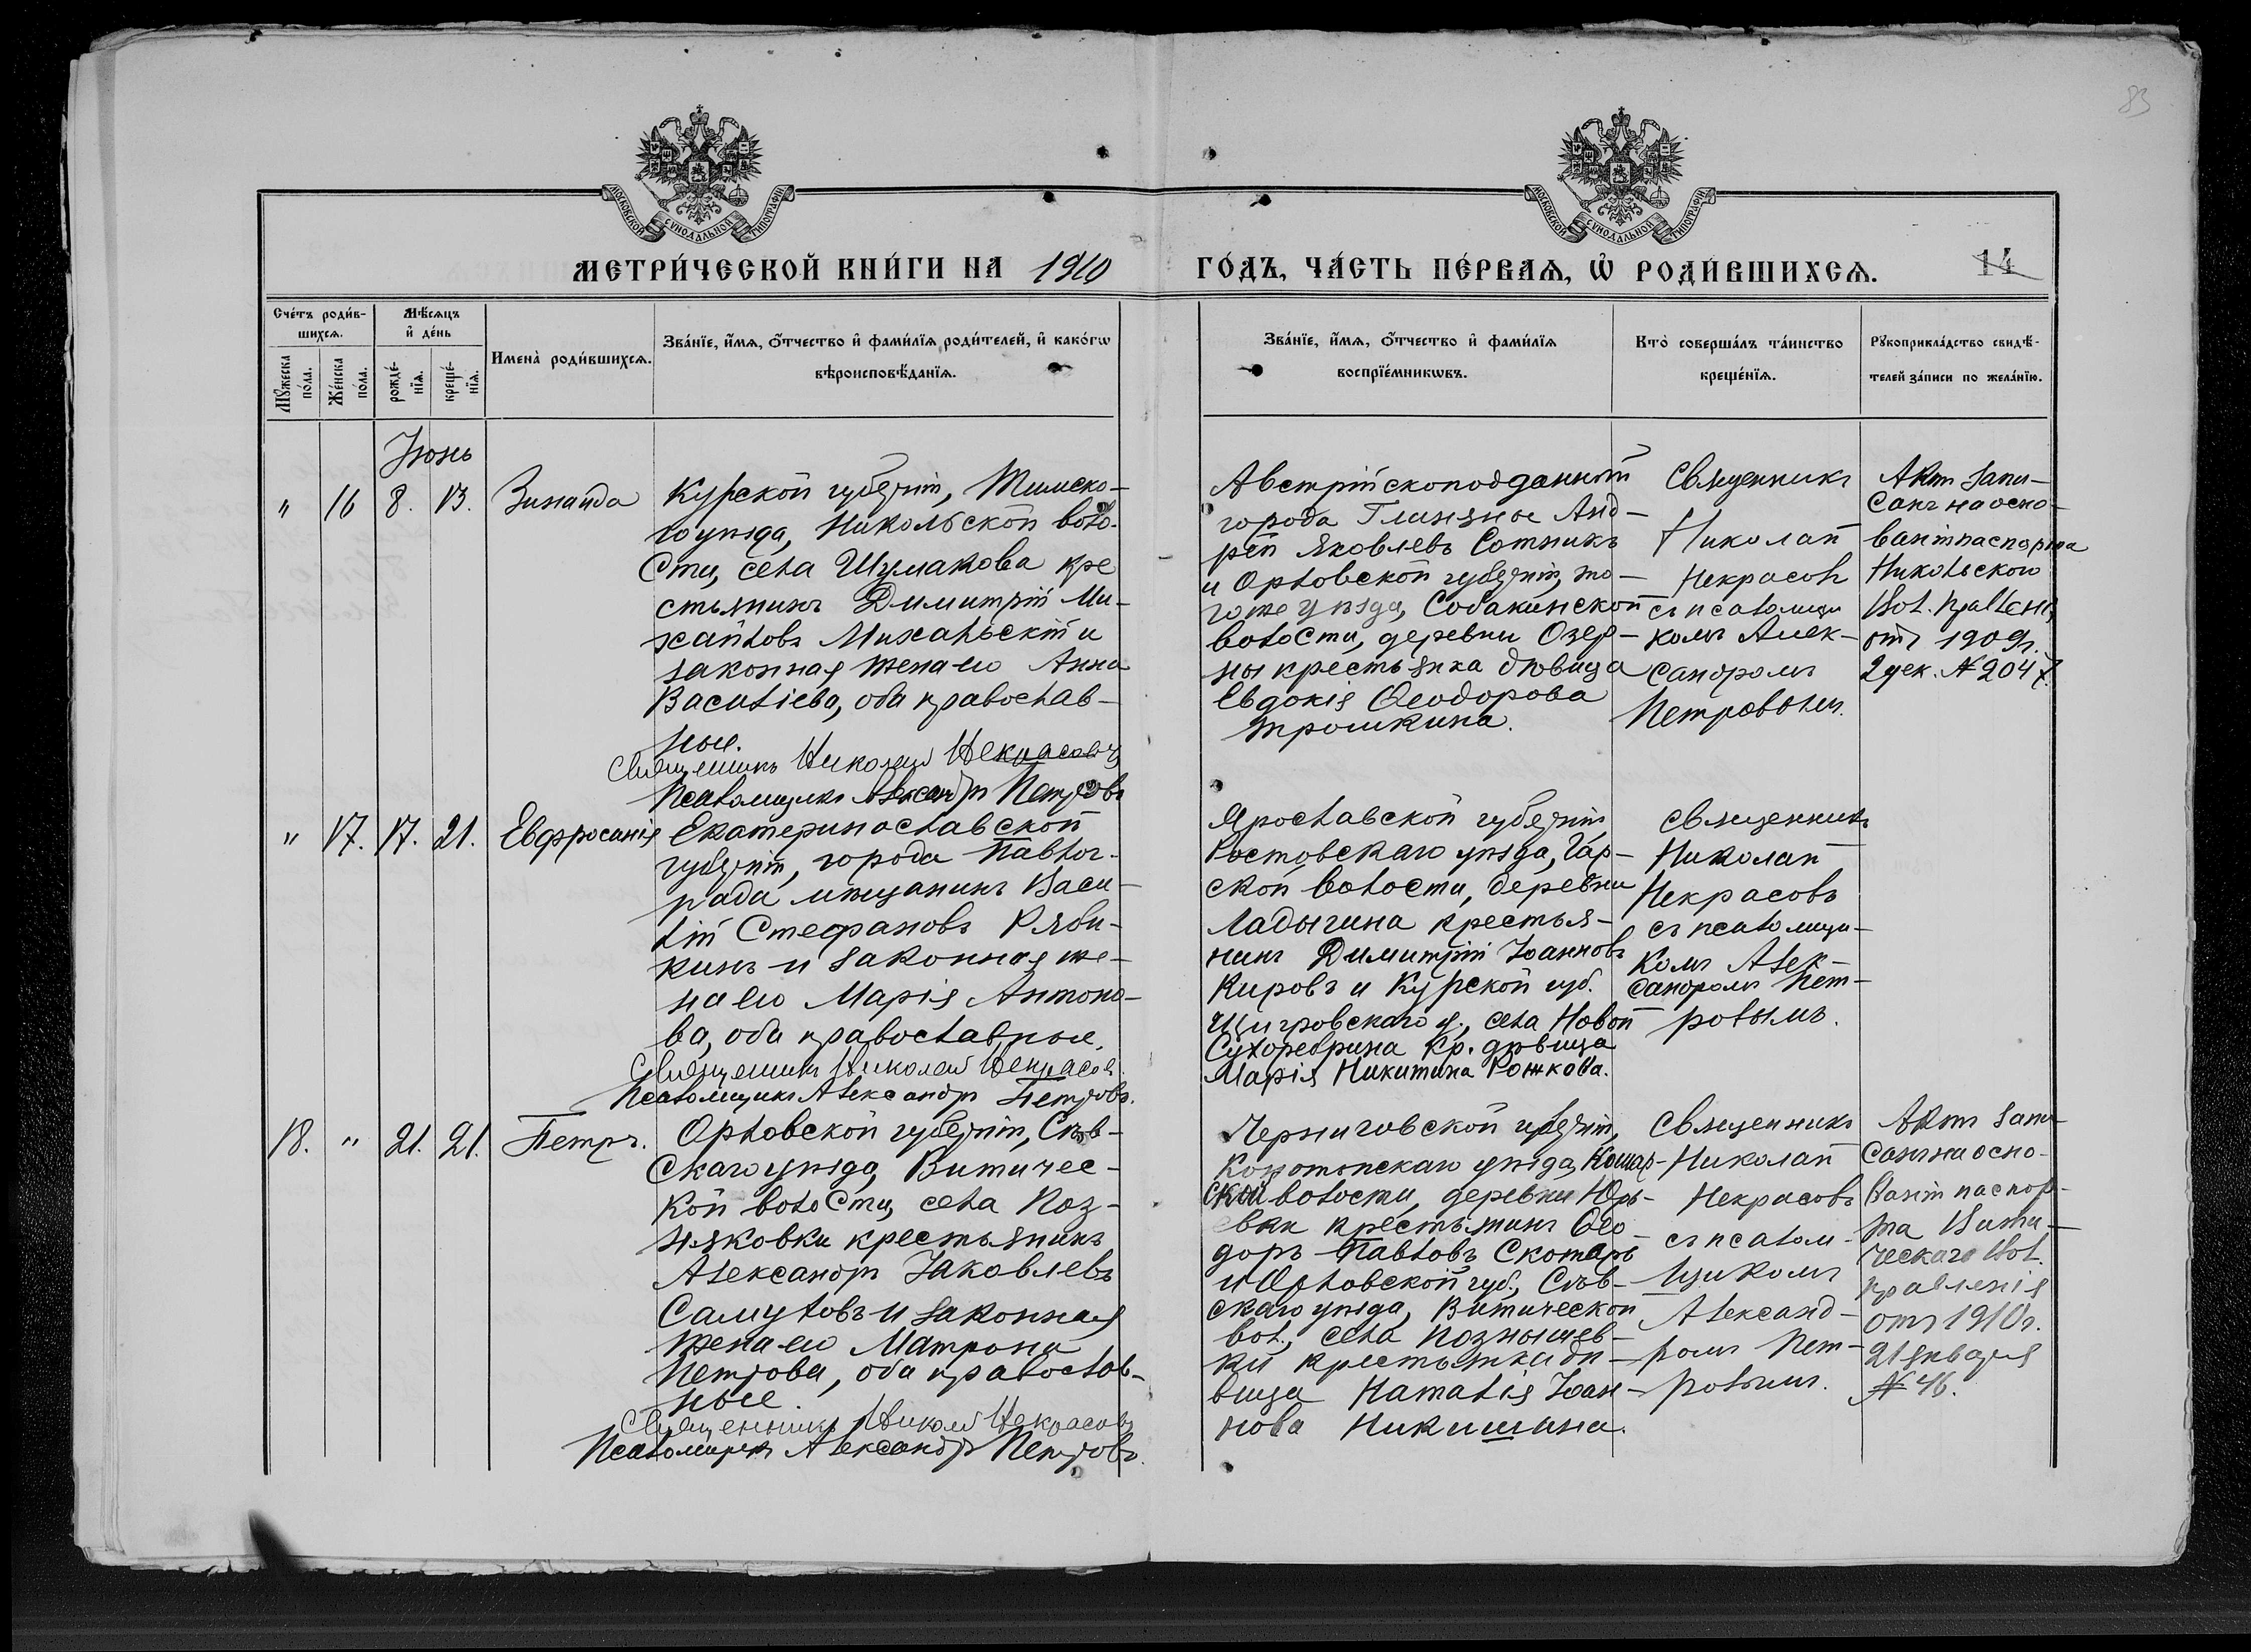 83
МОСКОВСКОЙ СѴНОДАЛЬНОЙ ТИПОГРАФІИ
МОСКОВСКОЙ СѴНОДАЛЬНОЙ ТИПОГРАФІИ
МЕТРИ́ЧЕСКОЙ КНИ́ГИ НА 1910
ГО́ДЪ, ЧА́СТЬ ПЕ́РВАѦ, Ѽ РОДИ́ВШИХСѦ.
14
Сче́тъ роди́в-
шихсѧ.
Мꙋ́жеска
по́ла.
Же́нска
по́ла.
Мѣ́сѧцъ
и҆ де́нь
рожде́-
нїѧ.
креще́-
нїѧ.
Имена̀ роди́вшихсѧ.
Зва́нїе, и҆́мѧ, ѻ҆́тчество и҆ фами́лїѧ роди́телей, и҆ како́гѡ
вѣроисповѣ́данїѧ.
Зва́нїе, и҆́мѧ, ѻ҆́тчество и҆ фами́лїѧ
воспрїе́мникѡвъ.
Кто̀ соверша́лъ та́инство
креще́нїѧ.
Рꙋкоприкла́дство свидѣ́-
телей за́писи по жела́нїю.
Іюнь
" 16 8. 13. Зинаида
Курской губерніи, Тимско-
го уѣзда, Никольской воло-
сти, села Шумакова кре
стьянинъ Димитрій Ми-
хайловъ Михальскій и
законная жена его Анна
Василіева, оба православ-
ные.
Священникъ Николай Некрасовъ
Псаломщикъ Александръ Петровъ
Австрійскоподданный
города Глиняное Анд-
рей Яковлевъ Сотникъ
и Орловской губерніи, то-
гоже уѣзда, Собакинской
волости, деревни Озер-
ны крестьянка дѣвица
Евдокія Ѳеодорова
Трошкина.
Священникъ
Николай
Некрасовъ
съ псаломщи
комъ Алек-
сандромъ
Петровымъ.
Актъ запи-
санъ на осно-
ваніи паспорта
Никольскаго
Вол. Правленія
отъ 1909г.
2 дек. № 2047.
" 17. 17. 21. Евфросинія
Екатеринославской
губерніи, города Павлог-
рада мѣщанинъ Васи-
лій Стефановъ Ряби-
кинъ и законная же-
на его Марія Антоно-
ва, оба православные.
Священникъ Николай Некрасовъ.
Псаломщикъ Александръ Петровъ.
Ярославской губерніи
Ростовскаго уѣзда, Гар-
ской волости, деревни
Ладыгина крестья-
нинъ Димитрій Іоанновъ
Кировъ и Курской губ.
Щигровскаго у., села Новой
Сухоребрина кр. дѣвица
Марія Никитина Рожкова.
Священникъ
Николай
Некрасовъ
съ псаломщи-
комъ Алек-
сандромъ Пет-
ровымъ.
18. " 21. 21. Петръ.
Орловской губерніи, Сѣв-
скаго уѣзда, Витичес-
кой волости, села Поз-
няковки крестьянинъ
Александръ Іаковлевъ
Самуловъ и законная
жена его Матрона
Петрова, оба православ-
ные.
Священникъ Николай Некрасовъ
Псаломщикъ Александръ Петровъ.
Черниговской губерніи,
Коротопскаго уѣзда,
ской волости, деревни Юрь-
евки крестьянинъ Ѳео-
доръ Павловъ Скотарь
и Орловской губ., Сѣв-
скаго уѣзда, Витической
вол., села
ки крестьянка дѣ-
вица Наталія Іоан-
нова Никишина.
Священникъ
Николай
Некрасовъ
съ псалом-
щикомъ
Александ-
ромъ Пет-
ровымъ.
Актъ запи-
санъ на осно-
ваніи паспор-
та Вити-
ческаго Вол.
правленія
отъ 1910г.
21 января
№ 46.